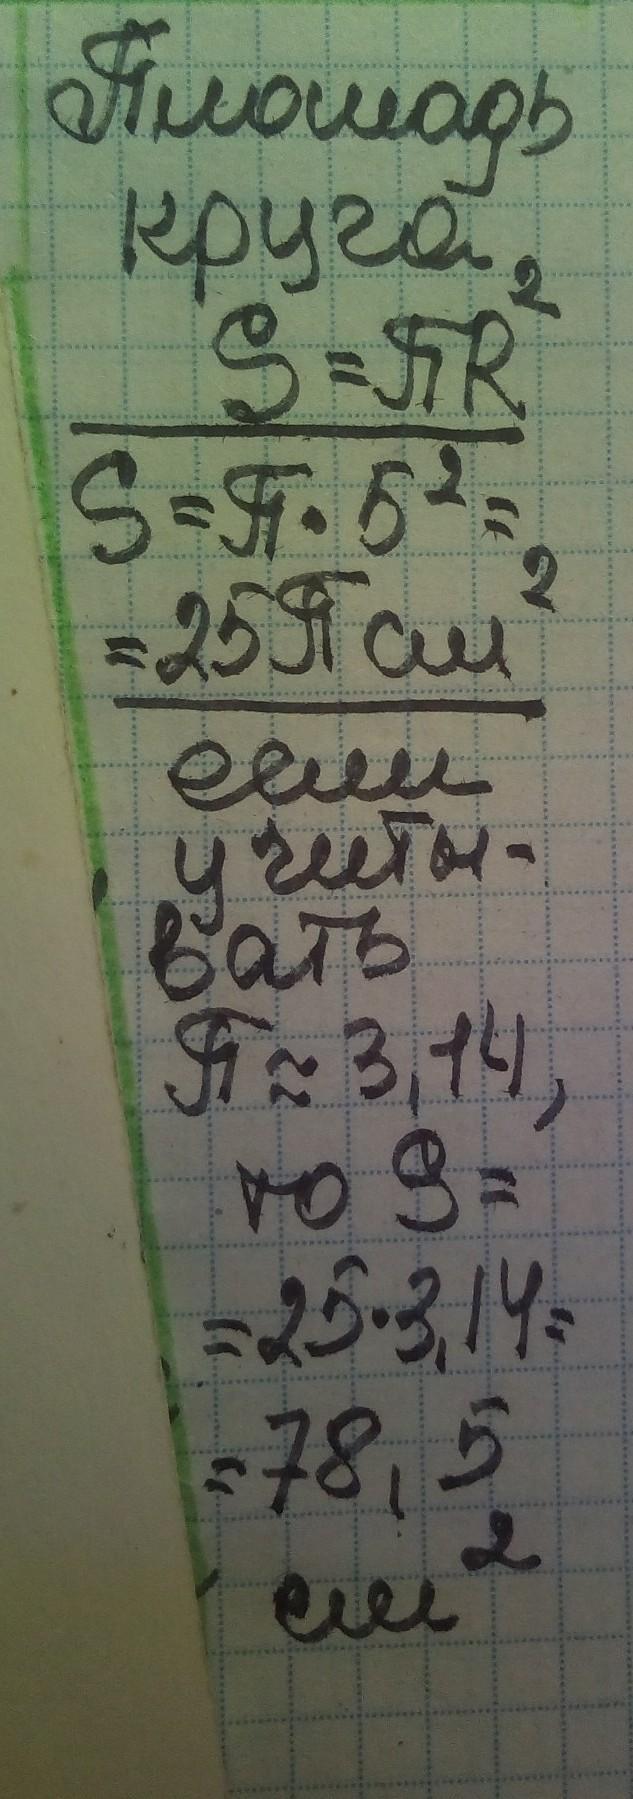 Площадь
круга
S = πR²
S = π · 5² =
= 25π см²
если
учиты-
вать
π ≈ 3,14,
то S =
= 25 · 3,14 =
= 78,5
см²